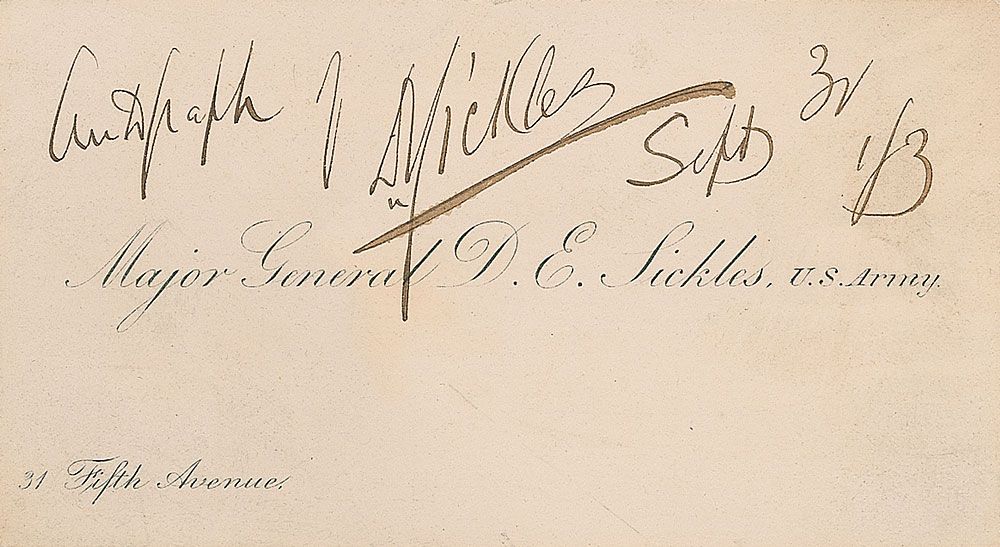 Autograph of D Sickles Sept
Major General D. E. Sickles, U.S. Army.
31 Fifth Avenue.